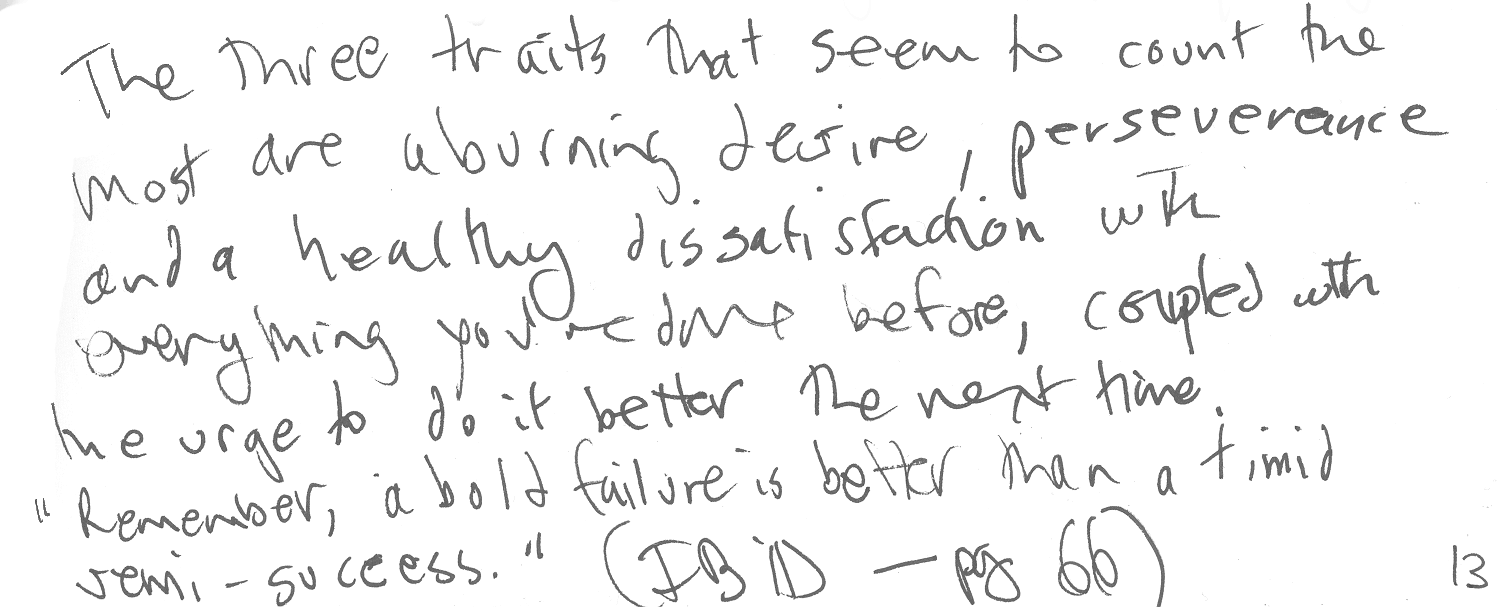 The three traits that seem to count the
most are a burning desire, perseverance
and a healthy dissatisfaction with
everything you've done before, coupled with
the urge to do it better the next time.
"Remember, a bold failure is better than a timid
semi-success." (IBID - pg 66)
13